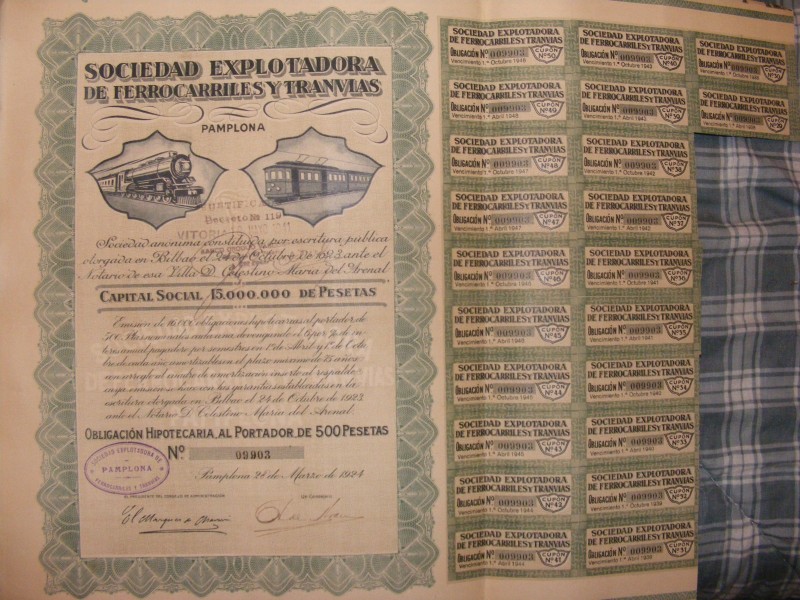 SOCIEDAD EXPLOTADORA
DE FERROCARRILES Y TRANVIAS
PAMPLONA
Decreto Nº 119
VITORIA
Sociedad anónima constituida por escritura pública
otorgada en Bilbao el 24 de Octubre de 1923, ante el
Notario de esa Villa D. Celestino María del Arenal
CAPITAL SOCIAL 15.000.000 DE PESETAS
Emisión de 16.000 obligaciones hipotecarias al portador de
500 Ptas nominales cada una devengando el 6 por % de in-
terés anual pagadero por semestres en 1º de Abril y 1º de Octu-
bre de cada año, amortizables en el plazo máximo de 75 años
con arreglo al cuadro de amortización inserto al respaldo
cuya emisión se hace con las garantías establecidas en la
escritura otorgada en Bilbao el 24 de Octubre de 1923
ante el Notario D. Celestino María del Arenal
OBLIGACIÓN HIPOTECARIA AL PORTADOR DE 500 PESETAS
Nº 09903
Pamplona 28 de Marzo de 1924
SOCIEDAD EXPLOTADORA DE
PAMPLONA
FERROCARRILES Y TRANVIAS
EL PRESIDENTE DEL CONSEJO DE ADMINISTRACIÓN
El Marqués de
SOCIEDAD EXPLOTADORA
DE FERROCARRILES Y TRANVIAS
OBLIGACIÓN Nº 009903 CUPÓN Nº 50
Vencimiento 1.º Octubre 1948
SOCIEDAD EXPLOTADORA
DE FERROCARRILES Y TRANVIAS
OBLIGACIÓN Nº 009903 CUPÓN Nº 40
Vencimiento 1.º Octubre 1943
SOCIEDAD EXPLOTADORA
DE FERROCARRILES Y TRANVIAS
OBLIGACIÓN Nº 009903 CUPÓN Nº 30
SOCIEDAD EXPLOTADORA
DE FERROCARRILES Y TRANVIAS
OBLIGACIÓN Nº 009903 CUPÓN Nº 49
Vencimiento 1.º Abril 1948
SOCIEDAD EXPLOTADORA
DE FERROCARRILES Y TRANVIAS
OBLIGACIÓN Nº 009903 CUPÓN Nº 39
Vencimiento 1.º Abril 1943
SOCIEDAD EXPLOTADORA
DE FERROCARRILES Y TRANVIAS
OBLIGACIÓN Nº 009903 CUPÓN Nº 29
Vencimiento 1.º Abril 1938
SOCIEDAD EXPLOTADORA
DE FERROCARRILES Y TRANVIAS
OBLIGACIÓN Nº 009903 CUPÓN Nº 48
Vencimiento 1.º Octubre 1947
SOCIEDAD EXPLOTADORA
DE FERROCARRILES Y TRANVIAS
OBLIGACIÓN Nº 009903 CUPÓN Nº 38
Vencimiento 1.º Octubre 1942
SOCIEDAD EXPLOTADORA
DE FERROCARRILES Y TRANVIAS
OBLIGACIÓN Nº 009903 CUPÓN Nº 47
Vencimiento 1.º Abril 1947
SOCIEDAD EXPLOTADORA
DE FERROCARRILES Y TRANVIAS
OBLIGACIÓN Nº 009903 CUPÓN Nº 37
Vencimiento 1.º Abril 1942
SOCIEDAD EXPLOTADORA
DE FERROCARRILES Y TRANVIAS
OBLIGACIÓN Nº 009903 CUPÓN Nº 46
Vencimiento 1.º Octubre 1946
SOCIEDAD EXPLOTADORA
DE FERROCARRILES Y TRANVIAS
OBLIGACIÓN Nº 009903 CUPÓN Nº 36
Vencimiento 1.º Octubre 1941
SOCIEDAD EXPLOTADORA
DE FERROCARRILES Y TRANVIAS
OBLIGACIÓN Nº 009903 CUPÓN Nº 45
Vencimiento 1.º Abril 1946
SOCIEDAD EXPLOTADORA
DE FERROCARRILES Y TRANVIAS
OBLIGACIÓN Nº 009903 CUPÓN Nº 35
Vencimiento 1.º Abril 1941
SOCIEDAD EXPLOTADORA
DE FERROCARRILES Y TRANVIAS
OBLIGACIÓN Nº 009903 CUPÓN Nº 44
Vencimiento 1.º Octubre 1945
SOCIEDAD EXPLOTADORA
DE FERROCARRILES Y TRANVIAS
OBLIGACIÓN Nº 009903 CUPÓN Nº 34
Vencimiento 1.º Octubre 1940
SOCIEDAD EXPLOTADORA
DE FERROCARRILES Y TRANVIAS
OBLIGACIÓN Nº 009903 CUPÓN Nº 43
Vencimiento 1.º Abril 1945
SOCIEDAD EXPLOTADORA
DE FERROCARRILES Y TRANVIAS
OBLIGACIÓN Nº 009903 CUPÓN Nº 33
Vencimiento 1.º Abril 1940
SOCIEDAD EXPLOTADORA
DE FERROCARRILES Y TRANVIAS
OBLIGACIÓN Nº 009903 CUPÓN Nº 42
Vencimiento 1.º Octubre 1944
SOCIEDAD EXPLOTADORA
DE FERROCARRILES Y TRANVIAS
OBLIGACIÓN Nº 009903 CUPÓN Nº 32
Vencimiento 1.º Octubre 1939
SOCIEDAD EXPLOTADORA
DE FERROCARRILES Y TRANVIAS
OBLIGACIÓN Nº 009903 CUPÓN Nº 41
Vencimiento 1.º Abril 1944
SOCIEDAD EXPLOTADORA
DE FERROCARRILES Y TRANVIAS
OBLIGACIÓN Nº 009903 CUPÓN Nº 31
Vencimiento 1.º Abril 1939